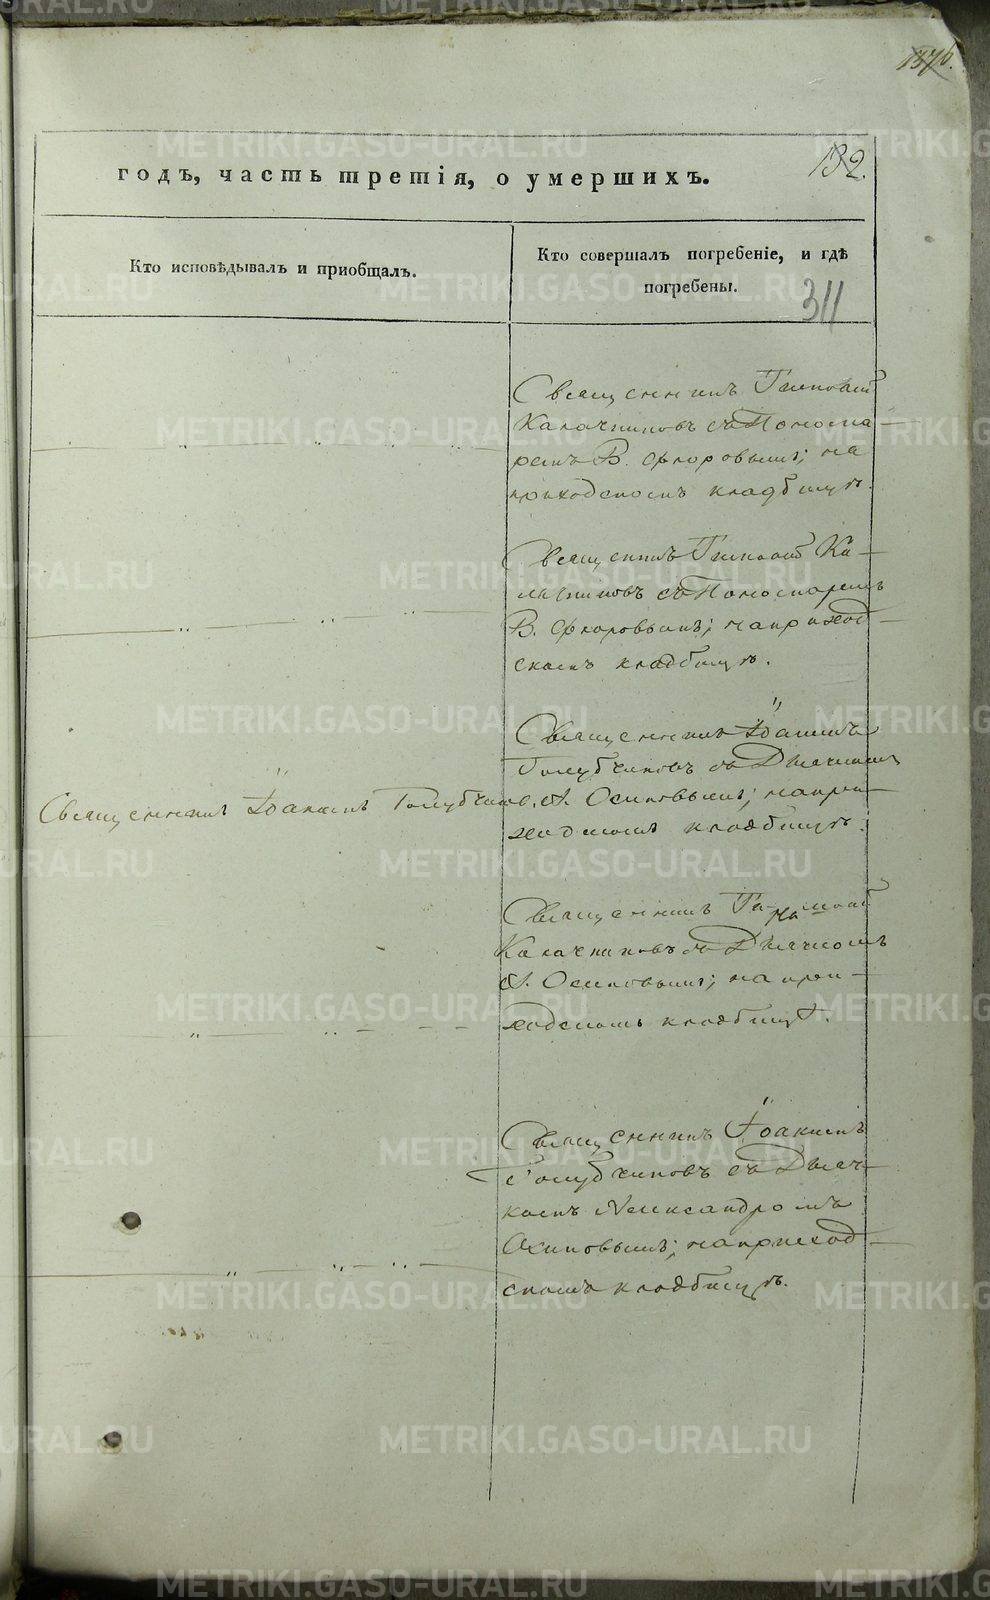 132.
годъ, часть третія, о умершихъ.
Кто исповѣдывалъ и пріобщалъ.
Кто совершалъ погребеніе, и гдѣ
погребены.
311
Священникъ
Калачниковъ съ Понома-
ремъ В. Флоровымъ; на
приходскомъ кладбищѣ.
Священникъ Ка-
лачниковъ съ Пономаремъ
В. Флоровымъ; на приход-
скомъ кладбищѣ.
Священникъ Іоакимъ
Голубчиковъ съ Дьячкомъ
Священникъ Іоакимъ Голубчиков.
А. Осиповымъ; на при-
ходскомъ кладбищѣ.
Священникъ
Калачниковъ съ Дьячкомъ
А. Осиповымъ; на при-
ходскомъ кладбищѣ.
Священникъ Іоакимъ
Голубчиковъ съ Дьяч-
комъ Александромъ
Осиповымъ; на приход-
скомъ кладбищѣ.
METRIKI.GASO-URAL.RU